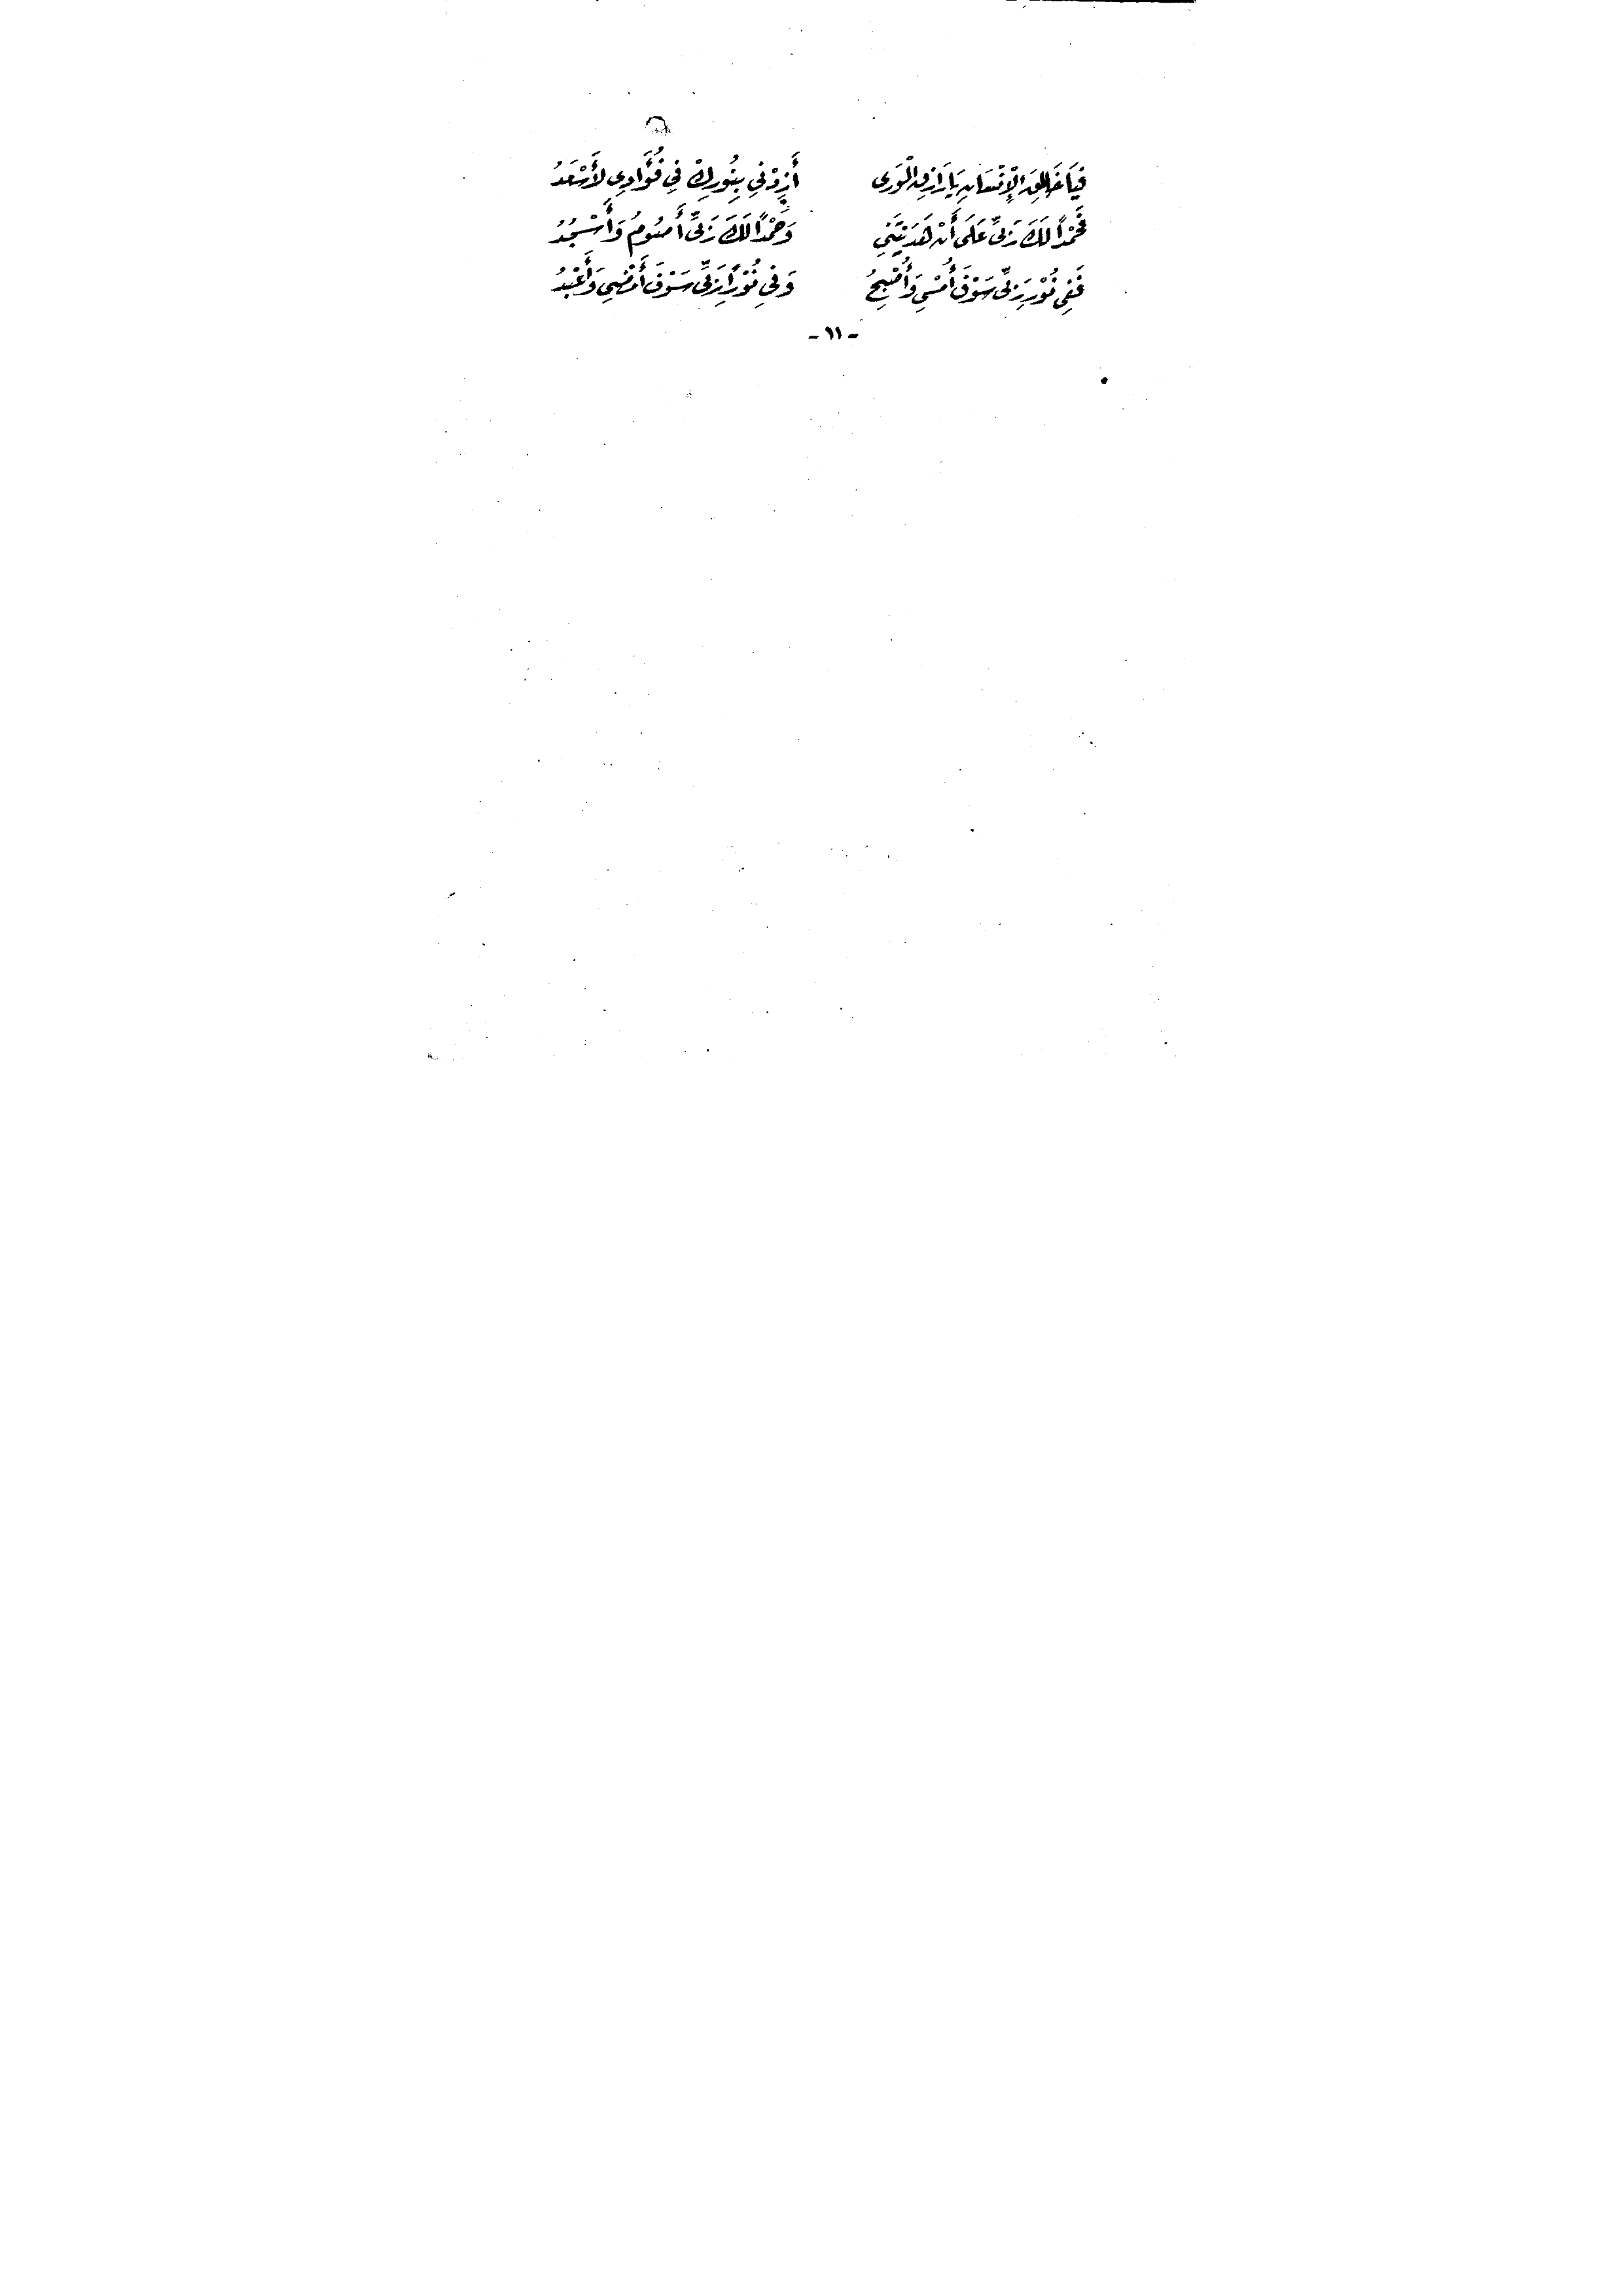 فَيَا خَالِقَ الْإِنْسَانِ يَا رَازِقَ الْوَرَى أَزِدْنِي بِنُورِكَ فِي فُؤَادِي لِأَسْعَدُ
فَحَمْدًا لَكَ رَبِّي عَلَى أَنْ هَدَيْتَنِي وَحَمْدًا لَكَ رَبِّي أَصُومُ وَأَسْجُدُ
فَفِي نُوْرِ رَبِّي سَوْفَ أُمْسِي وَأُصْبِحُ وَفِي نُوْرِ رَبِّي سَوْفَ أَمْضِي وَأَعْبُدُ
- ١١ -